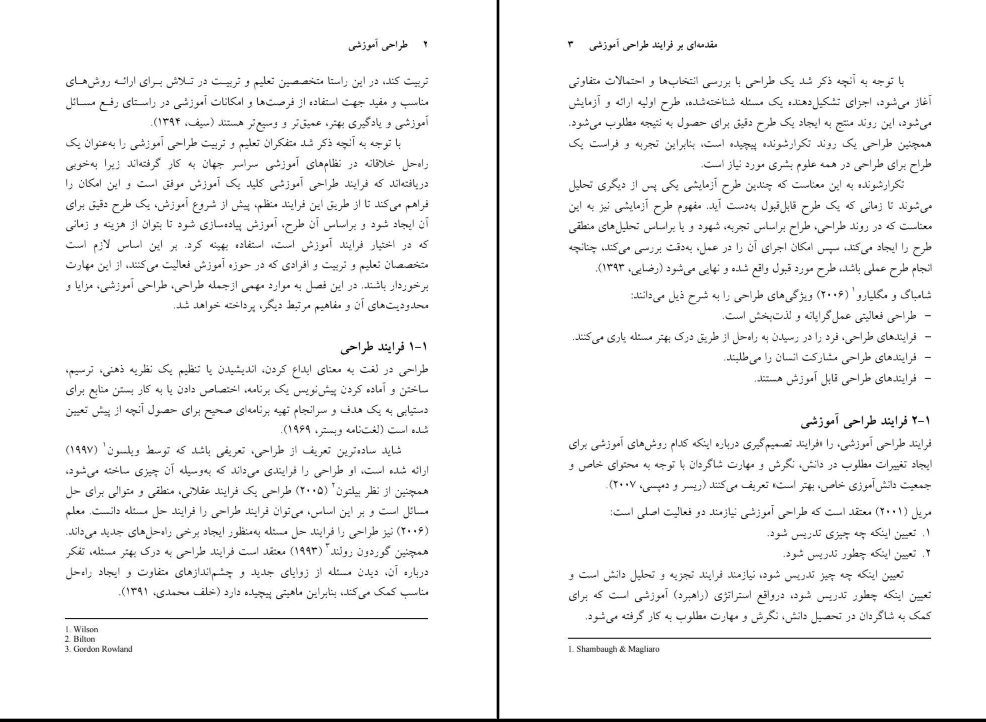 ۲ طراحی آموزشی
تربیت کند، در این راستا متخصصین تعلیم و تربیـت در تـلاش بـرای ارائـه روش‌هـای
مناسب و مفید جهت استفاده از فرصت‌ها و امکانات آموزشی در راسـتای رفـع مسـائل
آموزشی و یادگیری بهتر، عمیق‌تر و وسیع‌تر هستند (سیف، ۱۳۹۴).
با توجه به آنچه ذکر شد متفکران تعلیم و تربیت طراحی آموزشی را به‌عنوان یک
راه‌حل خلاقانه در نظام‌های آموزشی سراسر جهان به کار گرفته‌اند زیرا به‌خوبی
دریافته‌اند که فرایند طراحی آموزشی کلید یک آموزش موفق است و این امکان را
فراهم می‌کند تا از طریق این فرایند منظم، پیش از شروع آموزش، یک طرح دقیق برای
آن ایجاد شود و براساس آن طرح، آموزش پیاده‌سازی شود تا بتوان از هزینه و زمانی
که در اختیار فرایند آموزش است، استفاده بهینه کرد. بر این اساس لازم است
متخصصان تعلیم و تربیت و افرادی که در حوزه آموزش فعالیت می‌کنند، از این مهارت
برخوردار باشند. در این فصل به موارد مهمی ازجمله طراحی، طراحی آموزشی، مزایا و
محدودیت‌های آن و مفاهیم مرتبط دیگر، پرداخته خواهد شد.
۱-۱ فرایند طراحی
طراحی در لغت به معنای ابداع کردن، اندیشیدن یا تنظیم یک نظریه ذهنی، ترسیم،
ساختن و آماده کردن پیش‌نویس یک برنامه، اختصاص دادن یا به کار بستن منابع برای
دستیابی به یک هدف و سرانجام تهیه برنامه‌ای صحیح برای حصول آنچه از پیش تعیین
شده است (لغت‌نامه وبستر، ۱۹۶۹).
شاید ساده‌ترین تعریف از طراحی، تعریفی باشد که توسط ویلسون۱ (۱۹۹۷)
ارائه شده است، او طراحی را فرایندی می‌داند که به‌وسیله آن چیزی ساخته می‌شود،
همچنین از نظر بیلتون۲ (۲۰۰۵) طراحی یک فرایند عقلانی، منطقی و متوالی برای حل
مسائل است و بر این اساس، می‌توان فرایند طراحی را فرایند حل مسئله دانست. معلم
(۲۰۰۶) نیز طراحی را فرایند حل مسئله به‌منظور ایجاد برخی راه‌حل‌های جدید می‌داند.
همچنین گوردون رولند۳ (۱۹۹۳) معتقد است فرایند طراحی به درک بهتر مسئله، تفکر
درباره آن، دیدن مسئله از زوایای جدید و چشم‌اندازهای متفاوت و ایجاد راه‌حل
مناسب کمک می‌کند، بنابراین ماهیتی پیچیده دارد (خلف محمدی، ۱۳۹۱).
1. Wilson
2. Bilton
3. Gordon Rowland
مقدمه‌ای بر فرایند طراحی آموزشی ۳
با توجه به آنچه ذکر شد یک طراحی با بررسی انتخاب‌ها و احتمالات متفاوتی
آغاز می‌شود، اجزای تشکیل‌دهنده یک مسئله شناخته‌شده، طرح اولیه ارائه و آزمایش
می‌شود، این روند منتج به ایجاد یک طرح دقیق برای حصول به نتیجه مطلوب می‌شود.
همچنین طراحی یک روند تکرارشونده پیچیده است، بنابراین تجربه و فراست یک
طراح برای طراحی در همه علوم بشری مورد نیاز است.
تکرارشونده به این معناست که چندین طرح آزمایشی یکی پس از دیگری تحلیل
می‌شوند تا زمانی که یک طرح قابل‌قبول به‌دست آید. مفهوم طرح آزمایشی نیز به این
معناست که در روند طراحی، طراح براساس تجربه، شهود و یا براساس تحلیل‌های منطقی
طرح را ایجاد می‌کند، سپس امکان اجرای آن را در عمل، به‌دقت بررسی می‌کند، چنانچه
انجام طرح عملی باشد، طرح مورد قبول واقع شده و نهایی می‌شود (رضایی، ۱۳۹۳).
شامباگ و مگلیارو۱ (۲۰۰۶) ویژگی‌های طراحی را به شرح ذیل می‌دانند:
– طراحی فعالیتی عمل‌گرایانه و لذت‌بخش است.
– فرایندهای طراحی، فرد را در رسیدن به راه‌حل از طریق درک بهتر مسئله یاری می‌کنند.
– فرایندهای طراحی مشارکت انسان را می‌طلبند.
– فرایندهای طراحی قابل آموزش هستند.
۱-۲ فرایند طراحی آموزشی
فرایند طراحی آموزشی، را «فرایند تصمیم‌گیری درباره اینکه کدام روش‌های آموزشی برای
ایجاد تغییرات مطلوب در دانش، نگرش و مهارت شاگردان با توجه به محتوای خاص و
جمعیت دانش‌آموزی خاص، بهتر است» تعریف می‌کنند (ریسر و دمپسی، ۲۰۰۷).
مریل (۲۰۰۱) معتقد است که طراحی آموزشی نیازمند دو فعالیت اصلی است:
۱. تعیین اینکه چه چیزی تدریس شود.
۲. تعیین اینکه چطور تدریس شود.
تعیین اینکه چه چیز تدریس شود، نیازمند فرایند تجزیه و تحلیل دانش است و
تعیین اینکه چطور تدریس شود، درواقع استراتژی (راهبرد) آموزشی است که برای
کمک به شاگردان در تحصیل دانش، نگرش و مهارت مطلوب به کار گرفته می‌شود.
1. Shambaugh & Magliaro